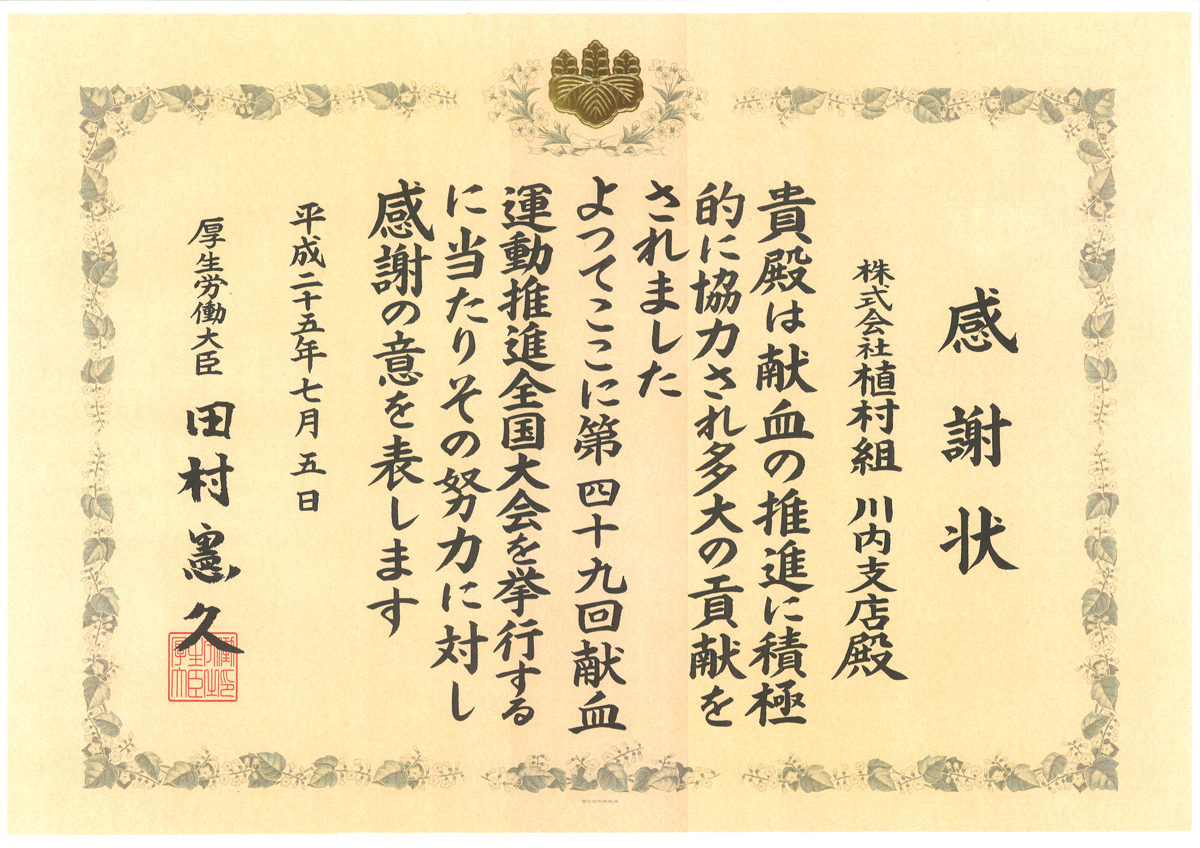 感謝状
株式会社植村組 川内支店殿
貴殿は献血の推進に積極
的に協力され多大の貢献を
されました
よつてここに第四十九回献血
運動推進全国大会を挙行する
に当たりその努力に対し
感謝の意を表します
平成二十五年七月五日
厚生労働大臣 田村憲久